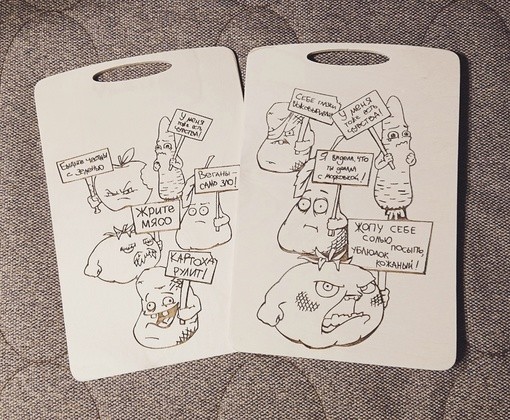 У МЕНЯ
ТОЖЕ ЕСТЬ
ЧУВСТВА!
С
ВЕГАНЫ -
ЗЛО!
ЖРИТЕ
МЯСО
КАРТОХА
РУЛИТ!
СЕБЕ ГЛАЗКИ
У МЕНЯ
ТОЖЕ ЕСТЬ
ЧУВСТВА!
Я ВИДЕЛА, ЧТО
ТЫ ДЕЛАЛ
С МОРКОВКОЙ!
ЖОПУ СЕБЕ
СОЛЬЮ ПОСЫПЬ,
УБЛЮДОК
КОЖАНЫЙ!